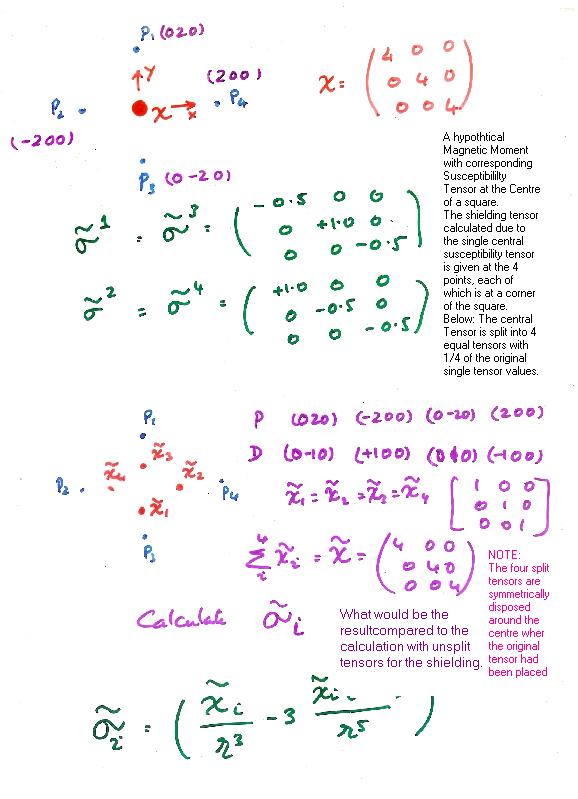 P₁ (020)
↑Y
(200)
P₂ • χ → x • P₄
(-200)
P₃ (0-20)
χ = ( 4 0 0
0 4 0
0 0 4 )
A hypothtical
Magnetic Moment
with corresponding
Susceptibililty
Tensor at the Centre
of a square.
The shielding tensor
calculated due to
the single central
susceptibility tensor
is given at the 4
points, each of
which is at a corner
of the square.
Below: The central
Tensor is split into 4
equal tensors with
1/4 of the original
single tensor values.
σ̃¹ = σ̃³ = ( -0.5 0 0
0 +1.0 0
0 0 -0.5 )
σ̃² = σ̃⁴ = ( +1.0 0 0
0 -0.5 0
0 0 -0.5 )
P₁
χ̃₃
P₂ • χ̃₄ χ̃₂ • P₄
χ̃₁
P₃
P (020) (-200) (0-20) (200)
D (0-10) (+100) (010) (-100)
χ̃₁ = χ̃₂ = χ̃₃ = χ̃₄ [ 1 0 0
0 1 0
0 0 1 ]
4
Σ χ̃ᵢ = χ̃ = ( 4 0 0
i
0 4 0
0 0 4 )
NOTE:
The four split
tensors are
symmetrically
disposed
around the
centre wher
the original
tensor had
been placed
Calculate σ̃ᵢ
What would be the
resultcompared to the
calculation with unsplit
tensors for the shielding.
σ̃ᵢ = ( χ̃ᵢ/r³ - 3 χ̃ᵢ. ./r⁵ )